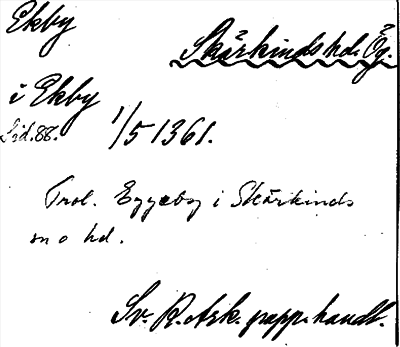 Ekby
Skärkinds hd. Ög.
i Ekby
Sid. 88. 1/5 1361.
Trol. Eggeby i Skärkinds
sn o hd.
Sv. R. Ark. papp. handl.